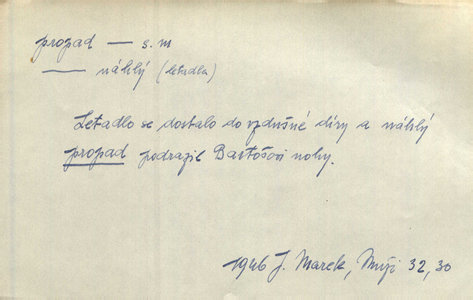 propad — s. m
— náhlý (letadla)
Letadlo se dostalo do vzdušné díry a náhlý
propad podrazil Bartošovi nohy.
1946 J. Marek, Muži 32, 30